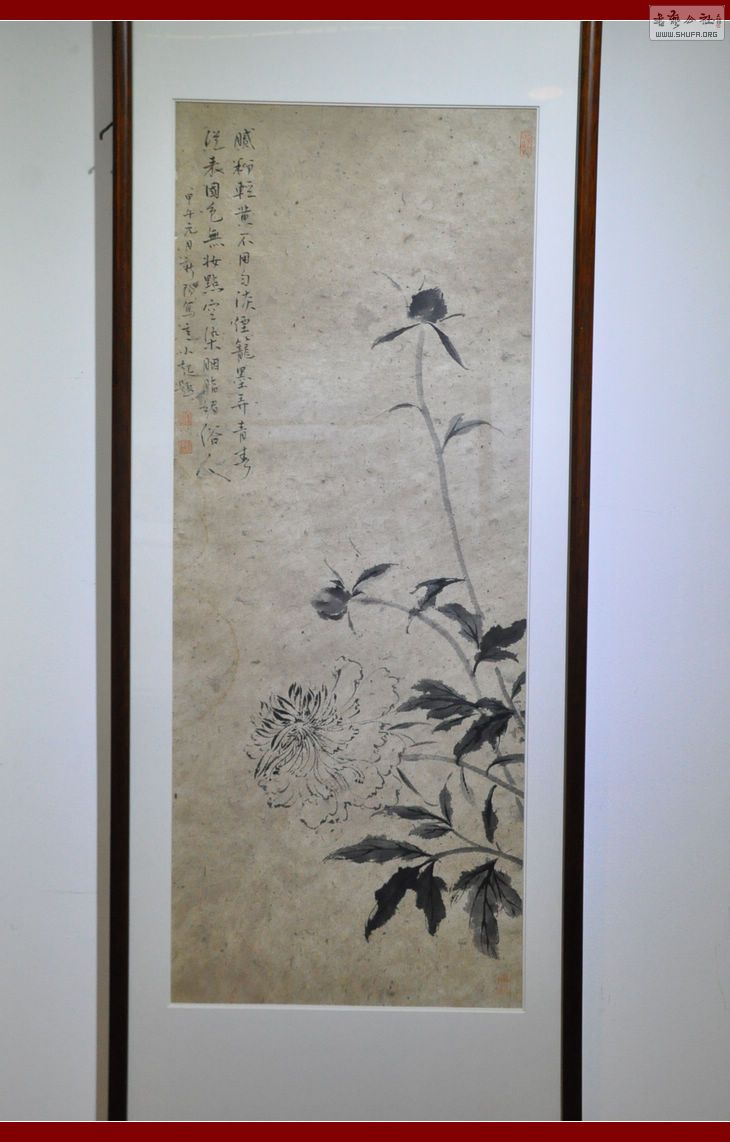 腻粉轻黄不用匀淡烟籠墨弄青春
從来國色無妝點空染胭脂媚俗人
甲午元月新陽寫意小記題
書藝公社
WWW.SHUFA.ORG